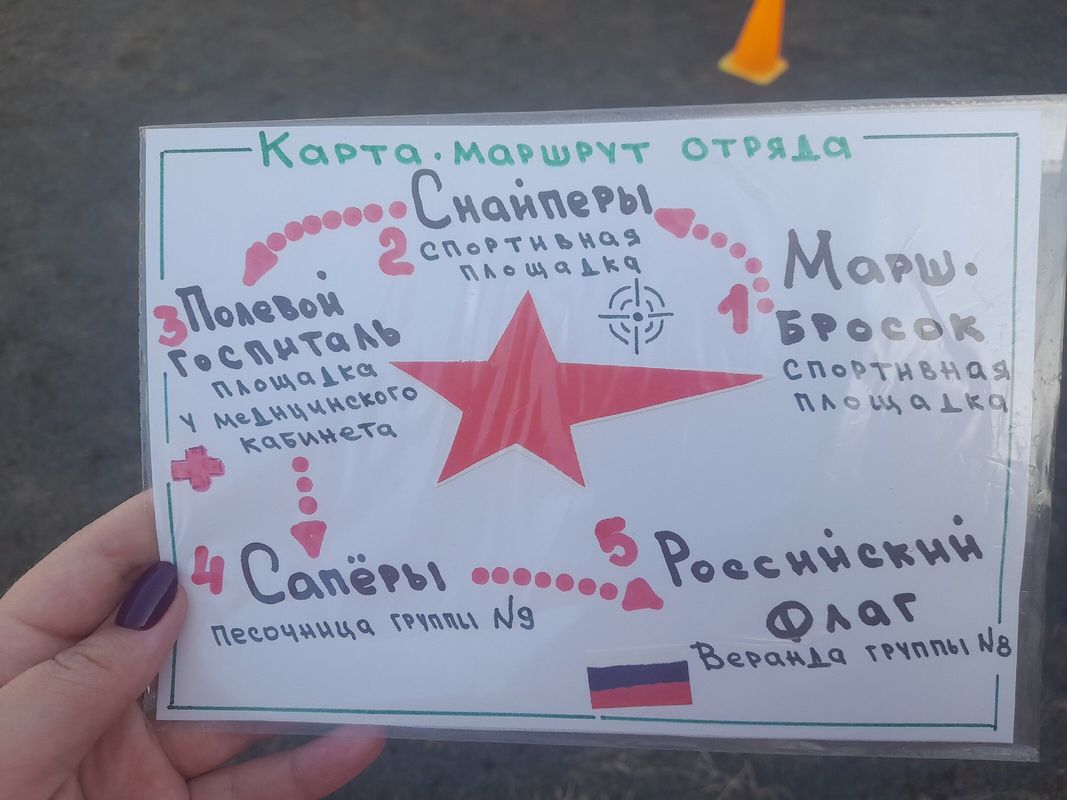 Карта-маршрут отряда
1
Марш-
бросок
спортивная
площадка
2
Снайперы
спортивная
площадка
3
Полевой
госпиталь
площадка
у медицинского
кабинета
4
Сапёры
песочница группы №9
5
Российский
Флаг
Веранда группы №8